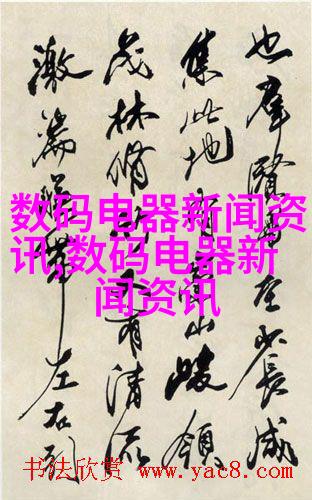 也群賢畢至少長咸
集此地有崇山峻領
茂林脩竹又有清流
激湍暎帶左右引
数码电器新闻资
讯,数码电器新
闻资讯
书法欣赏 www.yac8.com